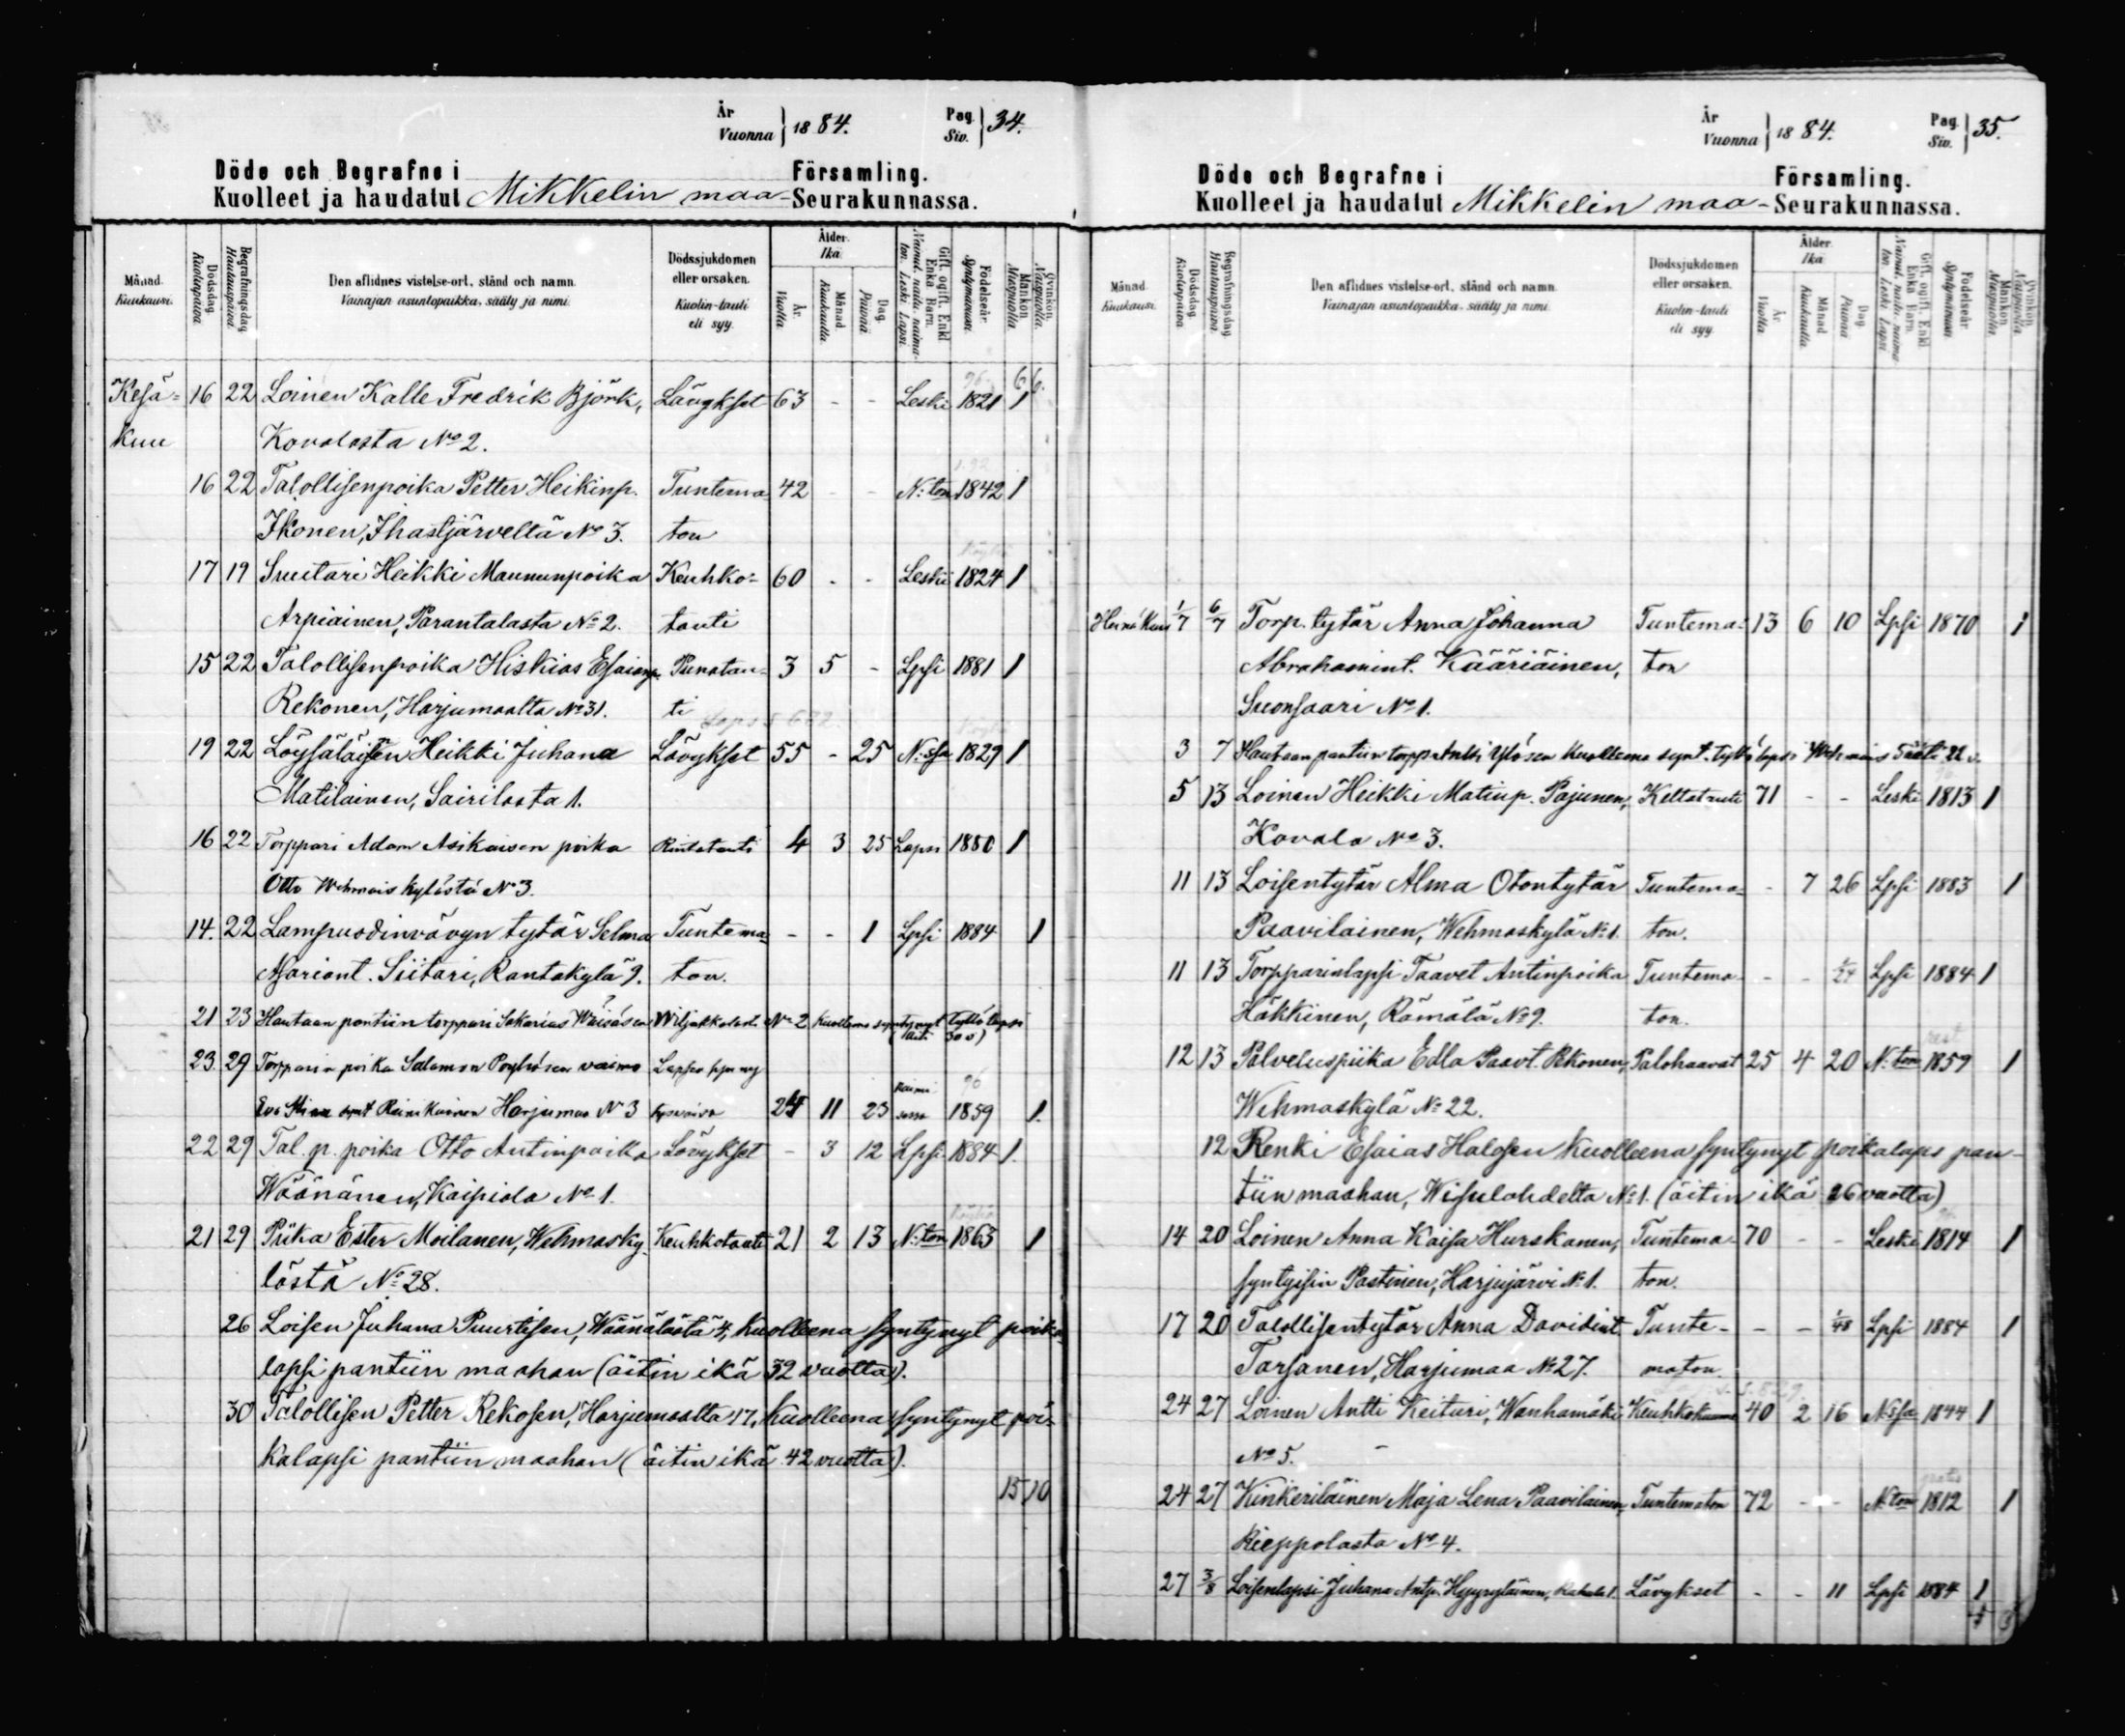 År
Vuonna } 1884.
Pag.
Siv. } 34.
Döde och Begrafne i Församling.
Kuolleet ja haudatut Mikkelin maa-Seurakunnassa.
Månad. Kuukausi.
Dödsdag. Kuolinpäivä
Begrafningsdag. Hautauspäivä.
Den aflidnes vistelse-ort, stånd och namn.
Vainajan asuntopaikka, sääty ja nimi.
Dödssjukdomen eller orsaken.
Kuolin-tauti eli syy.
Ålder. Ikä
År. Vuotta.
Månad. Kuukautta.
Dag. Päivää
Gift, ogift, Enkl. Enka Barn.
Nainut, naitu, naimaton. Leski. Lapsi.
Födelseår. Syntymävuosi.
Mankön. Miespuolia.
Qvinkön. Naispuolia.
Kesä- 16 22 Loinen Kalle Fredrik Björk, Lävykset 63 - - Leski 1821 1
kuu Kovalasta No 2.
16 22 Talollisenpoika Petter Heikinp. Tuntema 42 - - N:ton 1842 1
Ikonen, Ihastjärveltä No 3. ton
17 19 Suutari Heikki Maununpoika Keuhko- 60 - - Leski 1824 1
Arpiainen, Parantalasta No 2. tauti
15 22 Talollisenpoika Hiskias Esaianp. Punatau- 3 5 - Lpsi 1881 1
Rekonen, Harjumaalta No 31. ti
19 22 Löysäläisen Heikki Juhana Lävykset 55 - 25 N:ssa 1829 1
Matilainen, Sairilasta 1.
16 22 Torppari Adam Asikaisen poika Rintatauti 4 3 25 Lapsi 1880 1
Otto Wehmais kylästä No 3.
14. 22 Lampuodinvävyn tytär Selma Tuntema- - - 1 Lpsi 1884 1
Mariant. Siitari, Rantakylä 9. ton.
21 23 Hautaan pantiin torppari Sakarias Wäisäsen Wiljakkalasta No 2 kuollena syntynyt tyttö lapsi
(äiti 30 v)
23 29 Torpparin poika Salomon Pöyhösen vaimo Lapsen syn ny
Eva Stina synt Reinikainen Harjumaa N 3 tysessä 24 11 23 naimi sessa 1859 1.
22 29 Tal. p. poika Otto Antinpoika Lävykset - 3 12 Lpsi 1884 1.
Wäänänen, Kaipiola No 1.
21 29 Piika Ester Moilanen, Wehmasky- Keuhkotauti 21 2 13 N:ton 1863 1
lästä No 28.
26 Loisen Juhana Puurtisen, Wäänälästä 4, kuolleena syntynyt poika
lapsi pantiin maahan (äitin ikä 32 vuotta).
30 Talollisen Petter Rekosen, Harjumaalta 17, kuolleena syntynyt poi-
kalapsi pantiin maahan (äitin ikä 42 vuotta).
15 10
År
Vuonna } 1884.
Pag.
Siv. } 35.
Döde och Begrafne i Församling.
Kuolleet ja haudatut Mikkelin maa-Seurakunnassa.
Månad. Kuukausi.
Dödsdag. Kuolinpäivä.
Begrafningsdag. Hautauspäivä.
Den aflidnes vistelse-ort, stånd och namn.
Vainajan asuntopaikka, sääty ja nimi.
Dödssjukdomen eller orsaken.
Kuolin-tauti eli syy.
Ålder. Ikä
År. Vuotta.
Månad. Kuukautta.
Dag. Päivää
Gift, ogift, Enkl. Enka Barn.
Nainut, naitu, naimaton. Leski. Lapsi.
Födelseår. Syntymävuosi.
Mankön. Miespuolia.
Qvinkön. Naispuolia.
Heinä Kuu 1/7 6/7 Torp. tytär Anna Johanna Tuntema- 13 6 10 Lpsi 1870 1
Abrahamint. Kääriäinen, ton
Suonsaari No 1.
3 7 Hautaan pantiin torpp Antti Ylösen kuolleena synt. tyttö lapsi Wehmais äiti 22 v.
5 13 Loinen Heikki Matinp. Pajunen, Keltatauti 71 - - Leski 1813 1
Kovala No 3.
11 13 Loisentytär Alma Otontytär Tuntema- - 7 26 Lpsi 1883 1
Paavilainen, Wehmaskylä No 1. ton.
11 13 Torpparinlapsi Taavet Antinpoika Tuntema- - - 1/24 Lpsi 1884 1
Häkkinen, Rämälä No 9. ton.
12 13 Palveluspiika Edla Paavt. Rekonen, Palohaavat 25 4 20 N:ton 1859 1
Wehmaskylä No 22.
12 Renki Esaias Halosen kuolleena syntynyt poikalapsi pan-
tiin maahan, Wisulahdelta No 1. (äitin ikä 26 vuotta)
14 20 Loinen Anna Kaisa Hurskanen, Tuntema- 70 - - Leski 1814 1
syntyisin Pastinen, Harjujärvi No 1. ton.
17 20 Talollisentytär Anna Davidint. Tunte- - - 1/48 Lpsi 1884 1
Tarsanen, Harjumaa No 27. maton
24 27 Loinen Antti Keituri, Wanhamäki Keuhkokuume 40 2 16 N:ssa 1844 1
No 5.
24 27 Kinkeriläinen Maja Lena Paavilainen, Tuntematon 72 - - N:ton 1812 1
Rieppolasta No 4.
27 3/8 Loisenlapsi Juhana Antp. Hyyryläinen, 1. Lävykset - - 11 Lpsi 1884 1